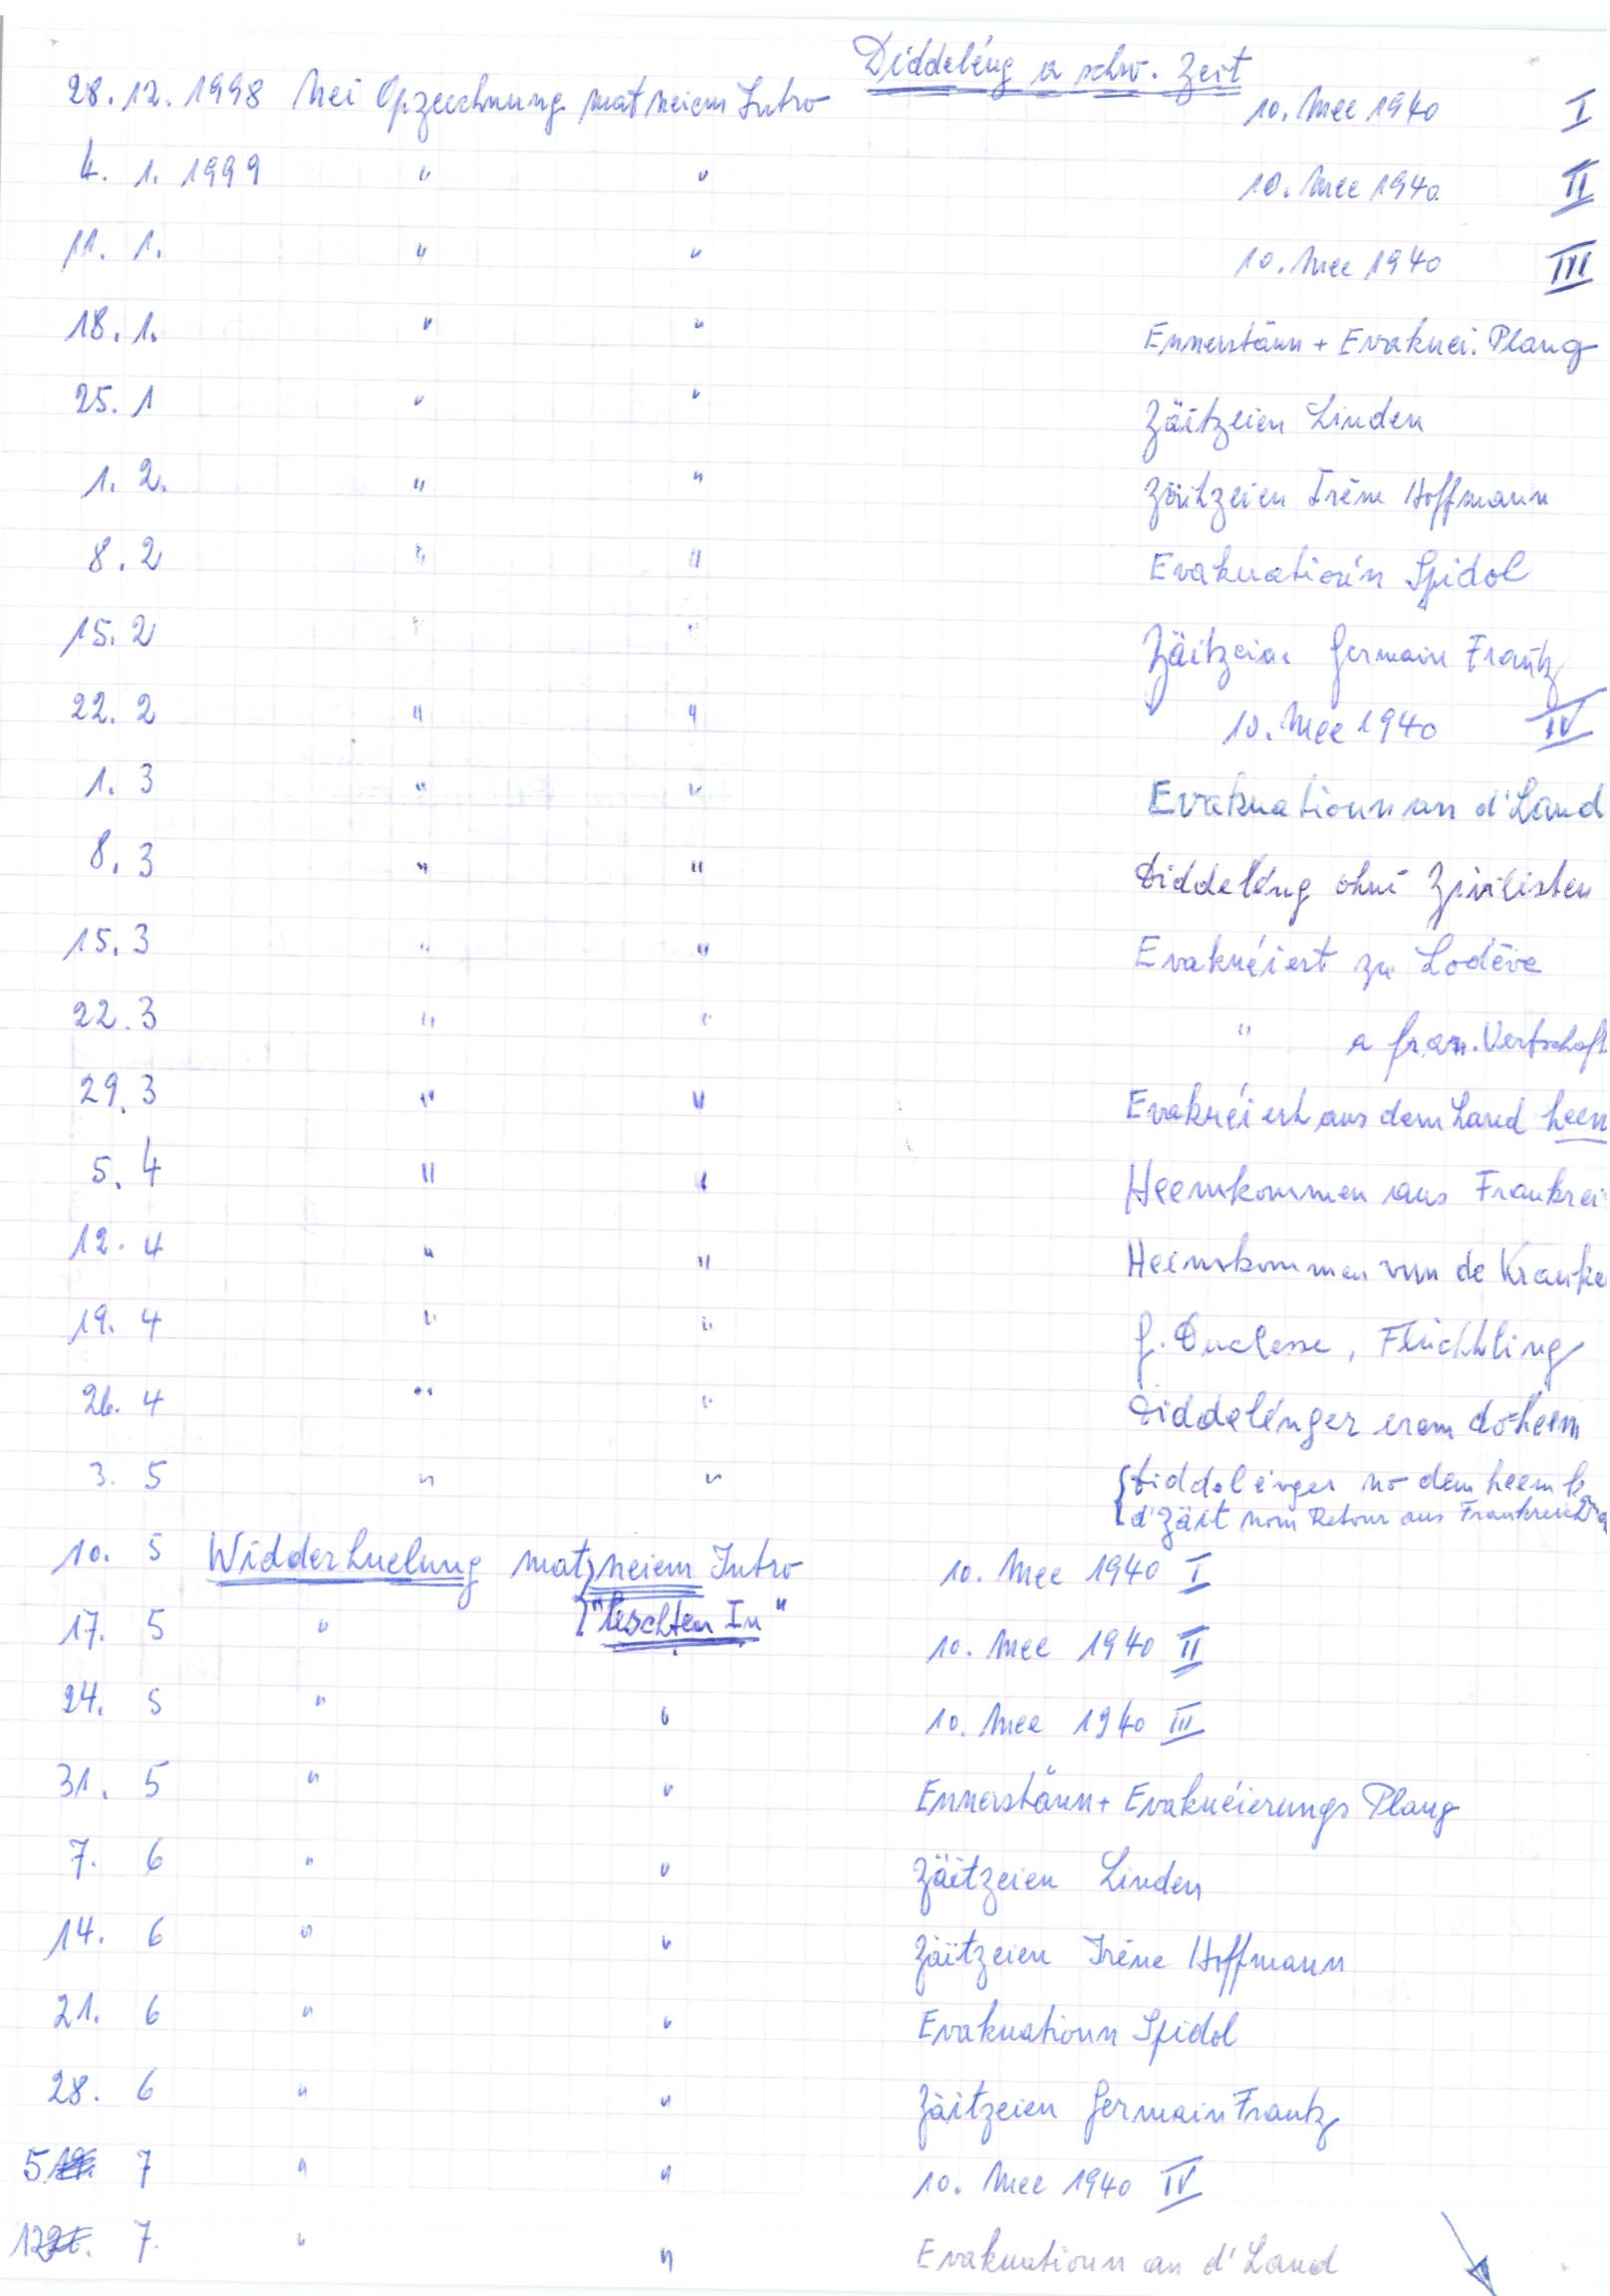 Diddeléng a schw. Zeit
28.12.1998 Nei Opzeechnung mat neiem Intro 10. Mee 1940 I
4. 1. 1999 " " 10. Mee 1940 II
11. 1. " " 10. Mee 1940 III
18. 1. " " Ennerstänn + Evakuei. Plang
25. 1 " " Zäitzeien Linden
1. 2. " " Zäitzeien Irène Hoffmann
8. 2 " " Evakuatioun Spidol
15. 2 " " Zäitzeien Germain Frantz
22. 2 " " 10. Mee 1940 IV
1. 3 " " Evakuatioun an d'Land
8. 3 " " Diddeléng ohni Zivilisten
15. 3 " " Evakuéiert zu Lodève
22. 3 " " " a fran. Uertschaft
29. 3 " " Evakuéiert aus dem Land heem
5. 4 " " Heemkommen aus Frankrei
12. 4 " " Heemkommen vun de Kranke
19. 4 " " J. Duclesse, Flüchtling
26. 4 " " Diddelénger erem doheem
3. 5 " " { Diddelénger no dem heem k
{ d'Zäit nom Retour aus Frankreich
10. 5 Widderhuelung mat } neiem Intro 10. Mee 1940 I
17. 5 " { "leschten In" 10. Mee 1940 II
24. 5 " " 10. Mee 1940 III
31. 5 " " Ennerstänn + Evakuéierungs Plang
7. 6 " " Zäitzeien Linden
14. 6 " " Zäitzeien Irène Hoffmann
21. 6 " " Evakuatioun Spidol
28. 6 " " Zäitzeien Germain Frantz
5. 7 " " 10. Mee 1940 IV
12. 7. " " Evakuatioun an d'Land